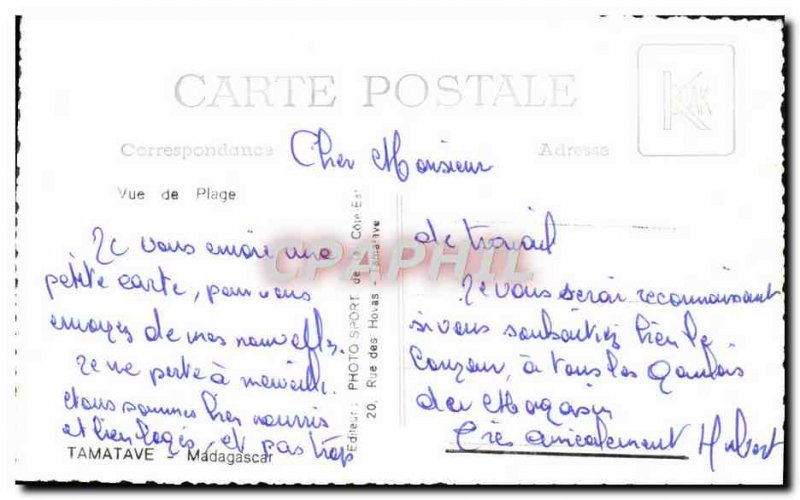 CARTE POSTALE
Correspondance
Adresse
Vue de Plage
Cher Monsieur
Je vous envoie une
petite carte, pour vous
envoyez de mes nouvelles.
Je me porte à merveille.
et nous sommes bien nourris
et bien logés, et pas trop
de travail
Je vous serai reconnaissant
si vous souhaitiez bien le
bonjour, à tous les
du Magasin
Très amicalement Hubert
TAMATAVE - Madagascar
Editeur : PHOTO SPORT de la Côte Est
20, Rue des Hovas - Tamatave
CPAPHIL